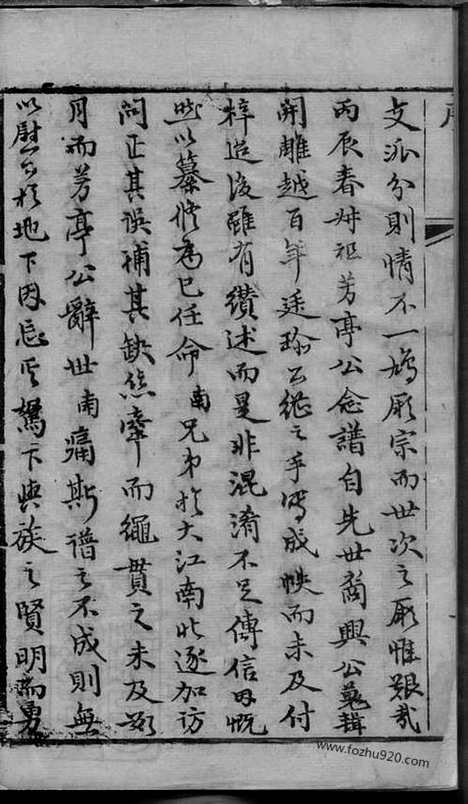 支派分則情不一鳩厥宗而世次之厥惟艱哉
丙辰春叔祖芳亭公念譜自先世裔興公蒐輯
開雕越百年廷珍公繼之手寫成帙而未及付
梓迨後雖有纘述而是非混淆不足傳信因慨
然以纂修為己任命南兄弟於大江南北逐加訪
問正其誤補其缺絲牽而繩貫之未及
月而芳亭公辭世南痛斯譜之不成則無
以慰公於地下因忘其駑下與族之賢明而勇
www.fozhu920.com